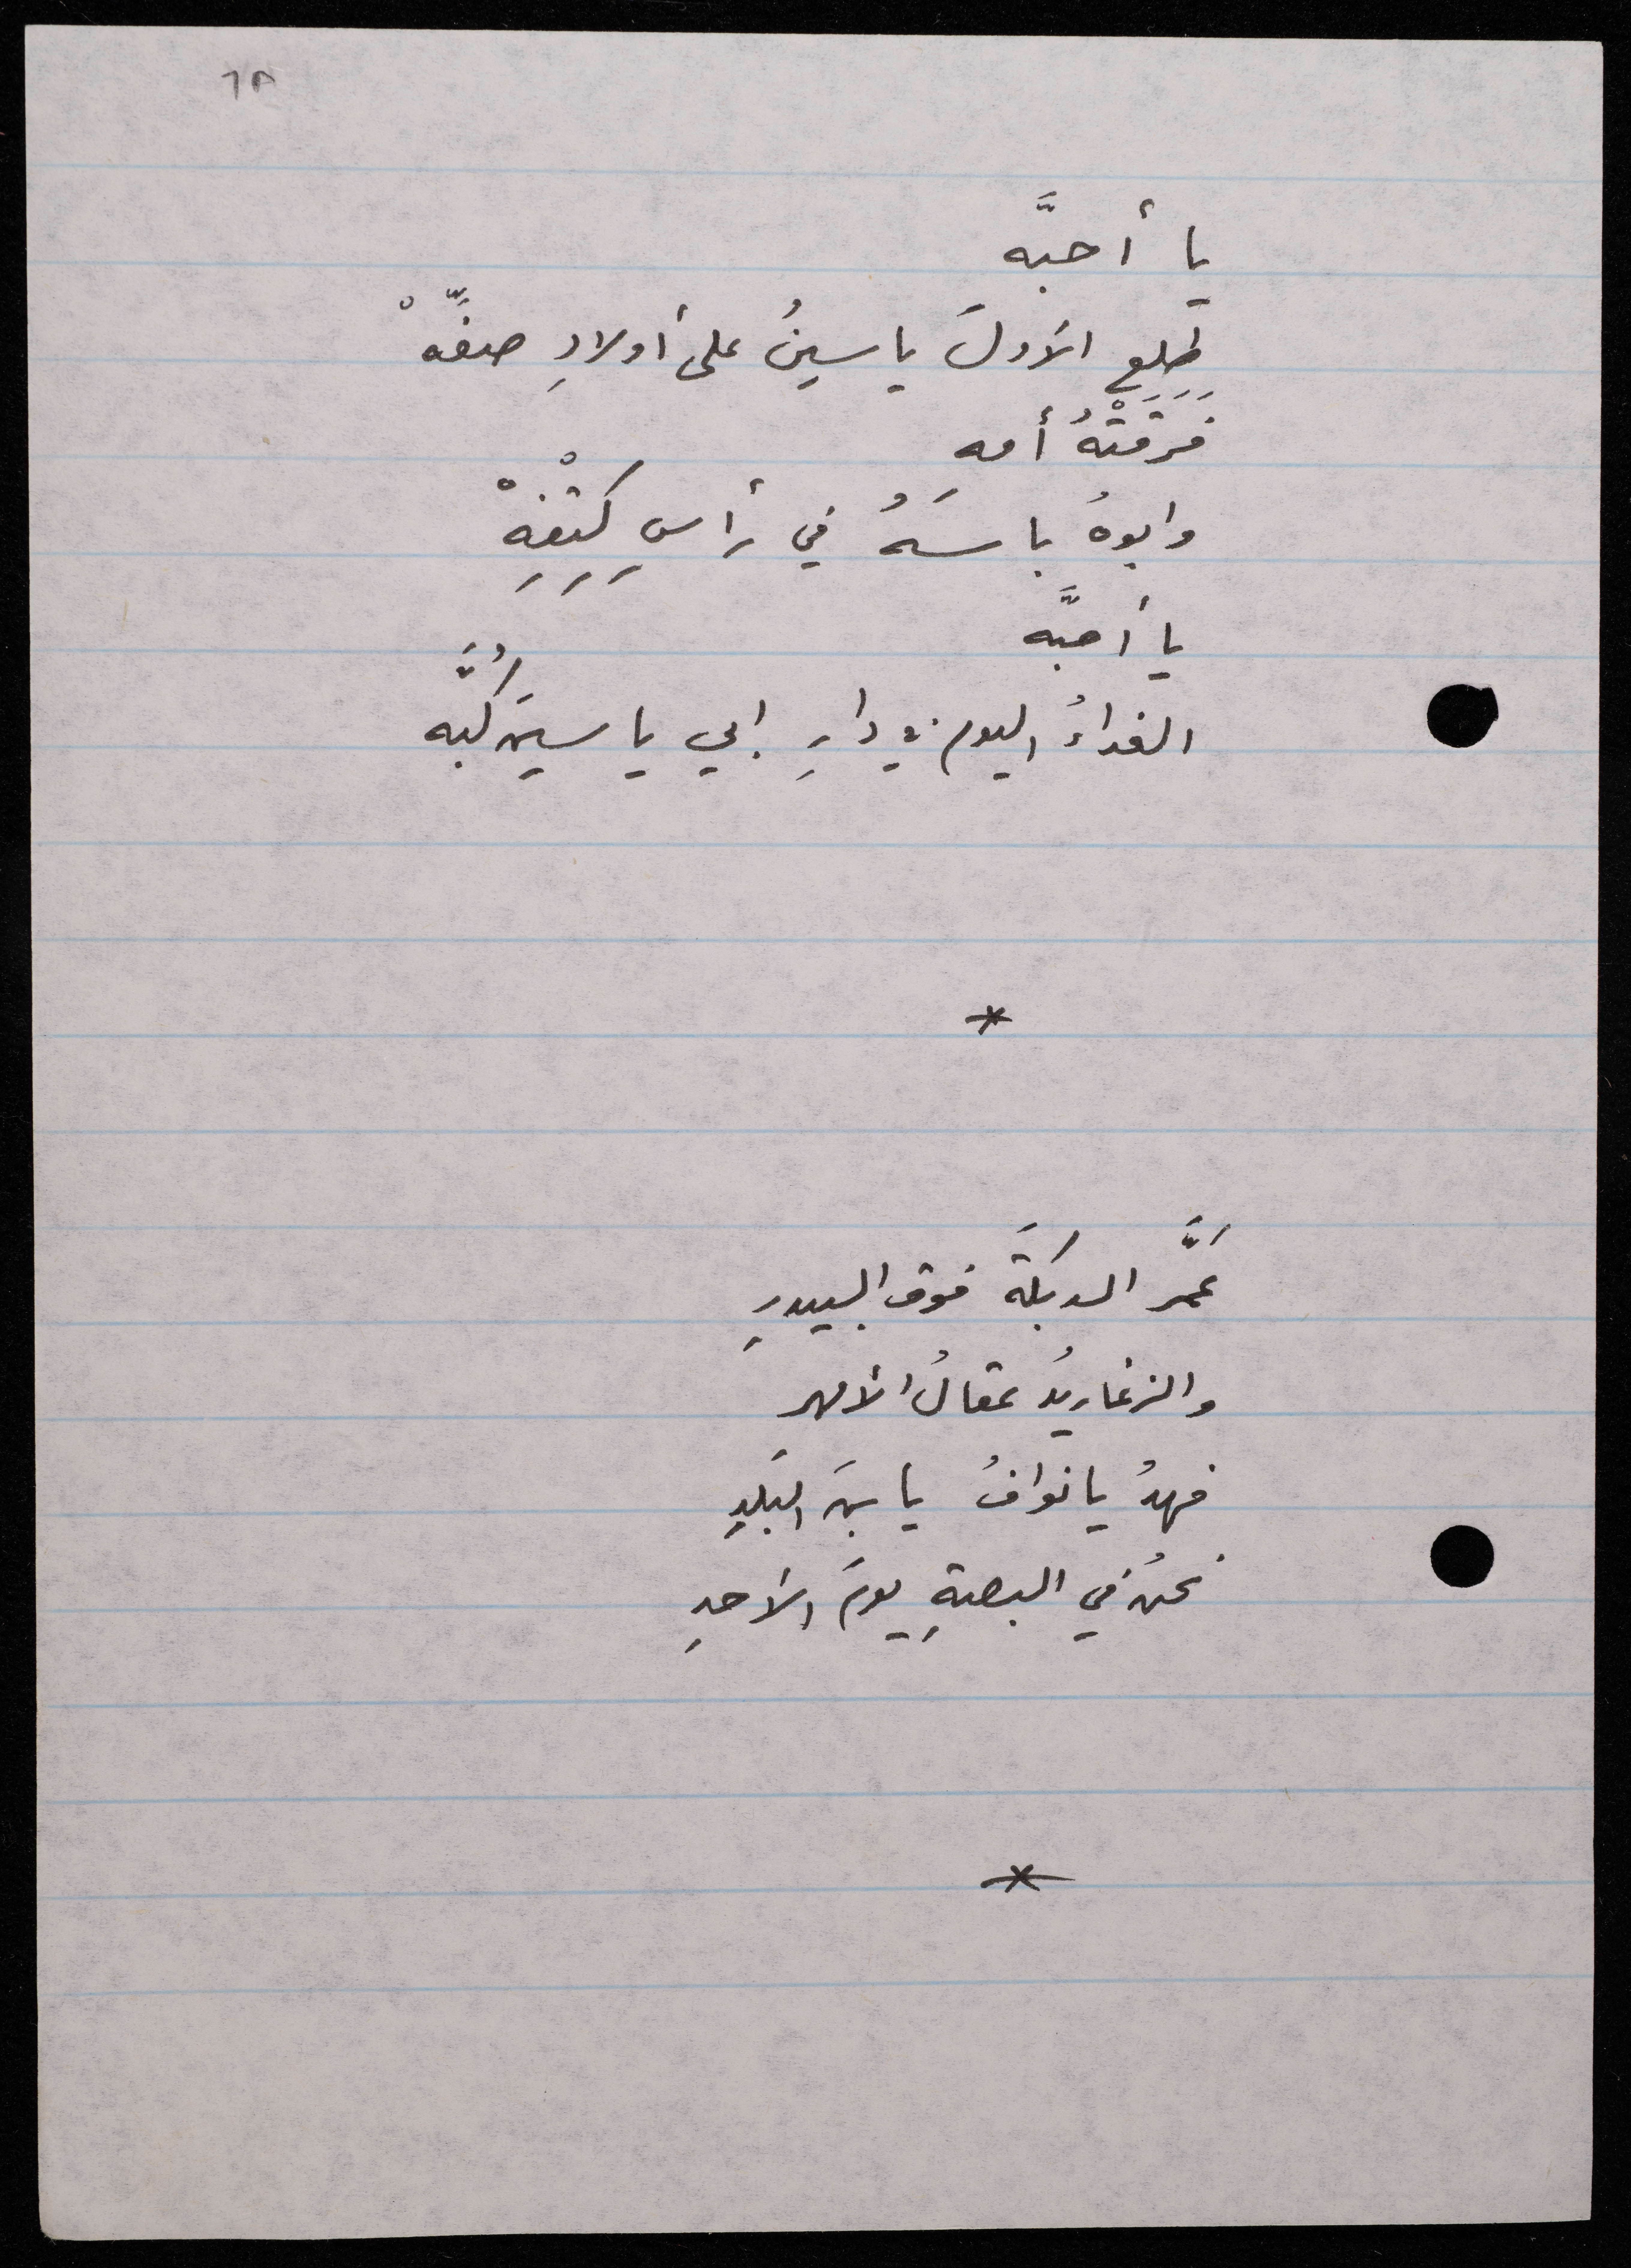 ٦٨
يا أحبَّه
طِلِعِ الأولَ ياسينُ على أولادِ صفِّهْ
فَرَقَتْهُ أمه
وابوهُ باسَهُ في رأسِ كِتْفِهْ
يا أحبَّه
الغداءُ اليوم في دارِ ابي ياسين كُبَّه
*
عَمَّر الدبكةَ فوق البيدرِ
والزغاريدُ عقالُ الأمهر
فهدُ يا نوافُ يا بنَ البَلَدِ
نحنُ في البصةِ يومَ الأحدِ
*